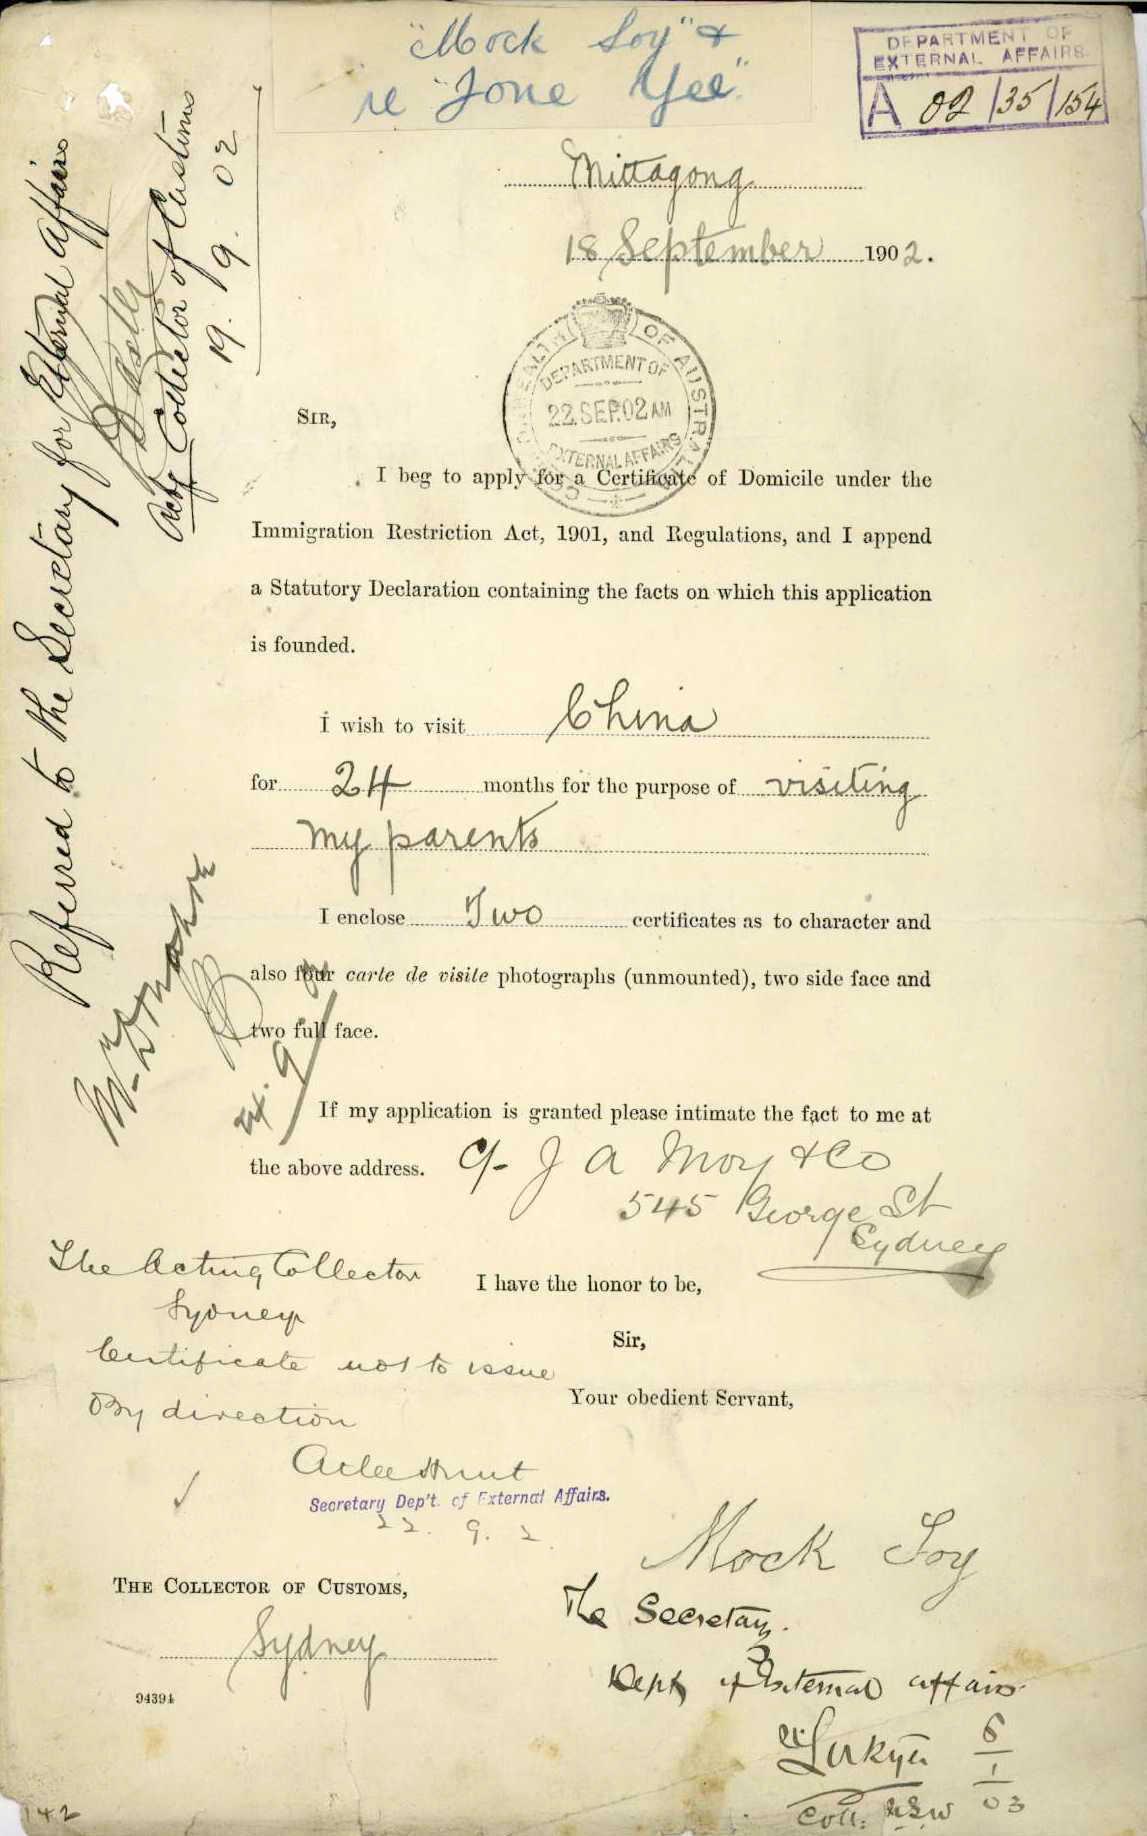 "Mock Soy" &
re "Jone Yee".
DEPARTMENT OF
EXTERNAL AFFAIRS.
A 02/35/154
Mittagong
18 September 1902.
COMMONWEALTH OF AUSTRALIA
DEPARTMENT OF
22.SEP.02 AM
EXTERNAL AFFAIRS
Referred to the Secretary for External Affairs
Actg Collector of Customs
19.9.02
SIR,
I beg to apply for a Certificate of Domicile under the
Immigration Restriction Act, 1901, and Regulations, and I append
a Statutory Declaration containing the facts on which this application
is founded.
I wish to visit China
for 24 months for the purpose of visiting
my parents
I enclose Two certificates as to character and
also four carte de visite photographs (unmounted), two side face and
two full face.
Mr. Donahoe
If my application is granted please intimate the fact to me at
the above address. C/- J A Moy & Co
545 George St
Sydney
The Acting Collector
Sydney
Certificate not to issue
By direction
Atlee Hunt
Secretary Dep't. of External Affairs.
22. 9. 2.
I have the honor to be,
Sir,
Your obedient Servant,
Mock Soy
THE COLLECTOR OF CUSTOMS,
Sydney
94394
The Secretary.
Dept of External Affairs
N Lockyer 6/1/03
Coll: NSW
142